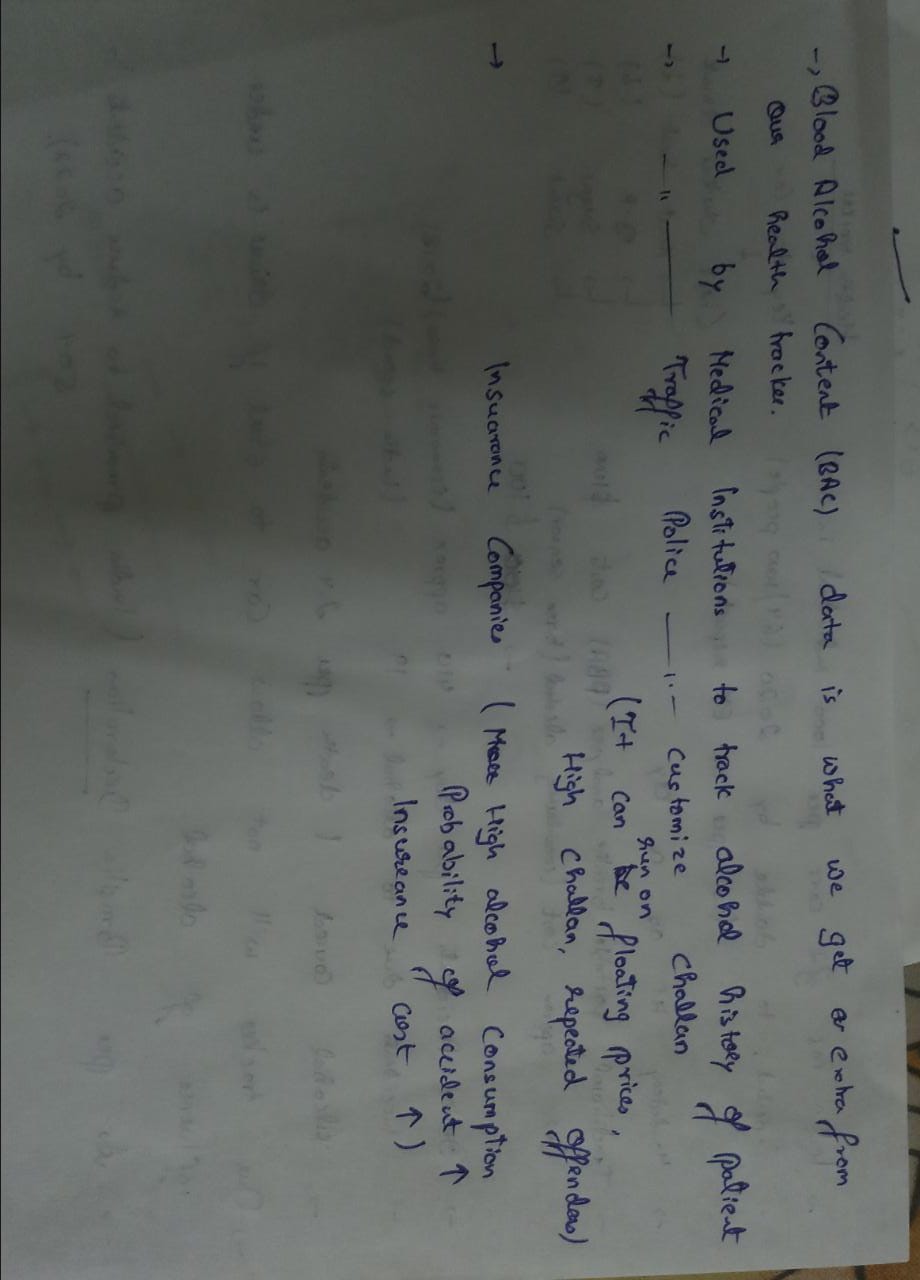 → Blood Alcohol Content (BAC) data is what we get a extra from
our health tracker.
→ Used by Medical Institutions to track alcohol history of patient
→ — " — Traffic Police — " — customize challan
(It can run on floating prices,
High challan, repeated offendors)
→ Insuarance Companies (High alcohol consumption
Probability of accident ↑
Insureance cost ↑)